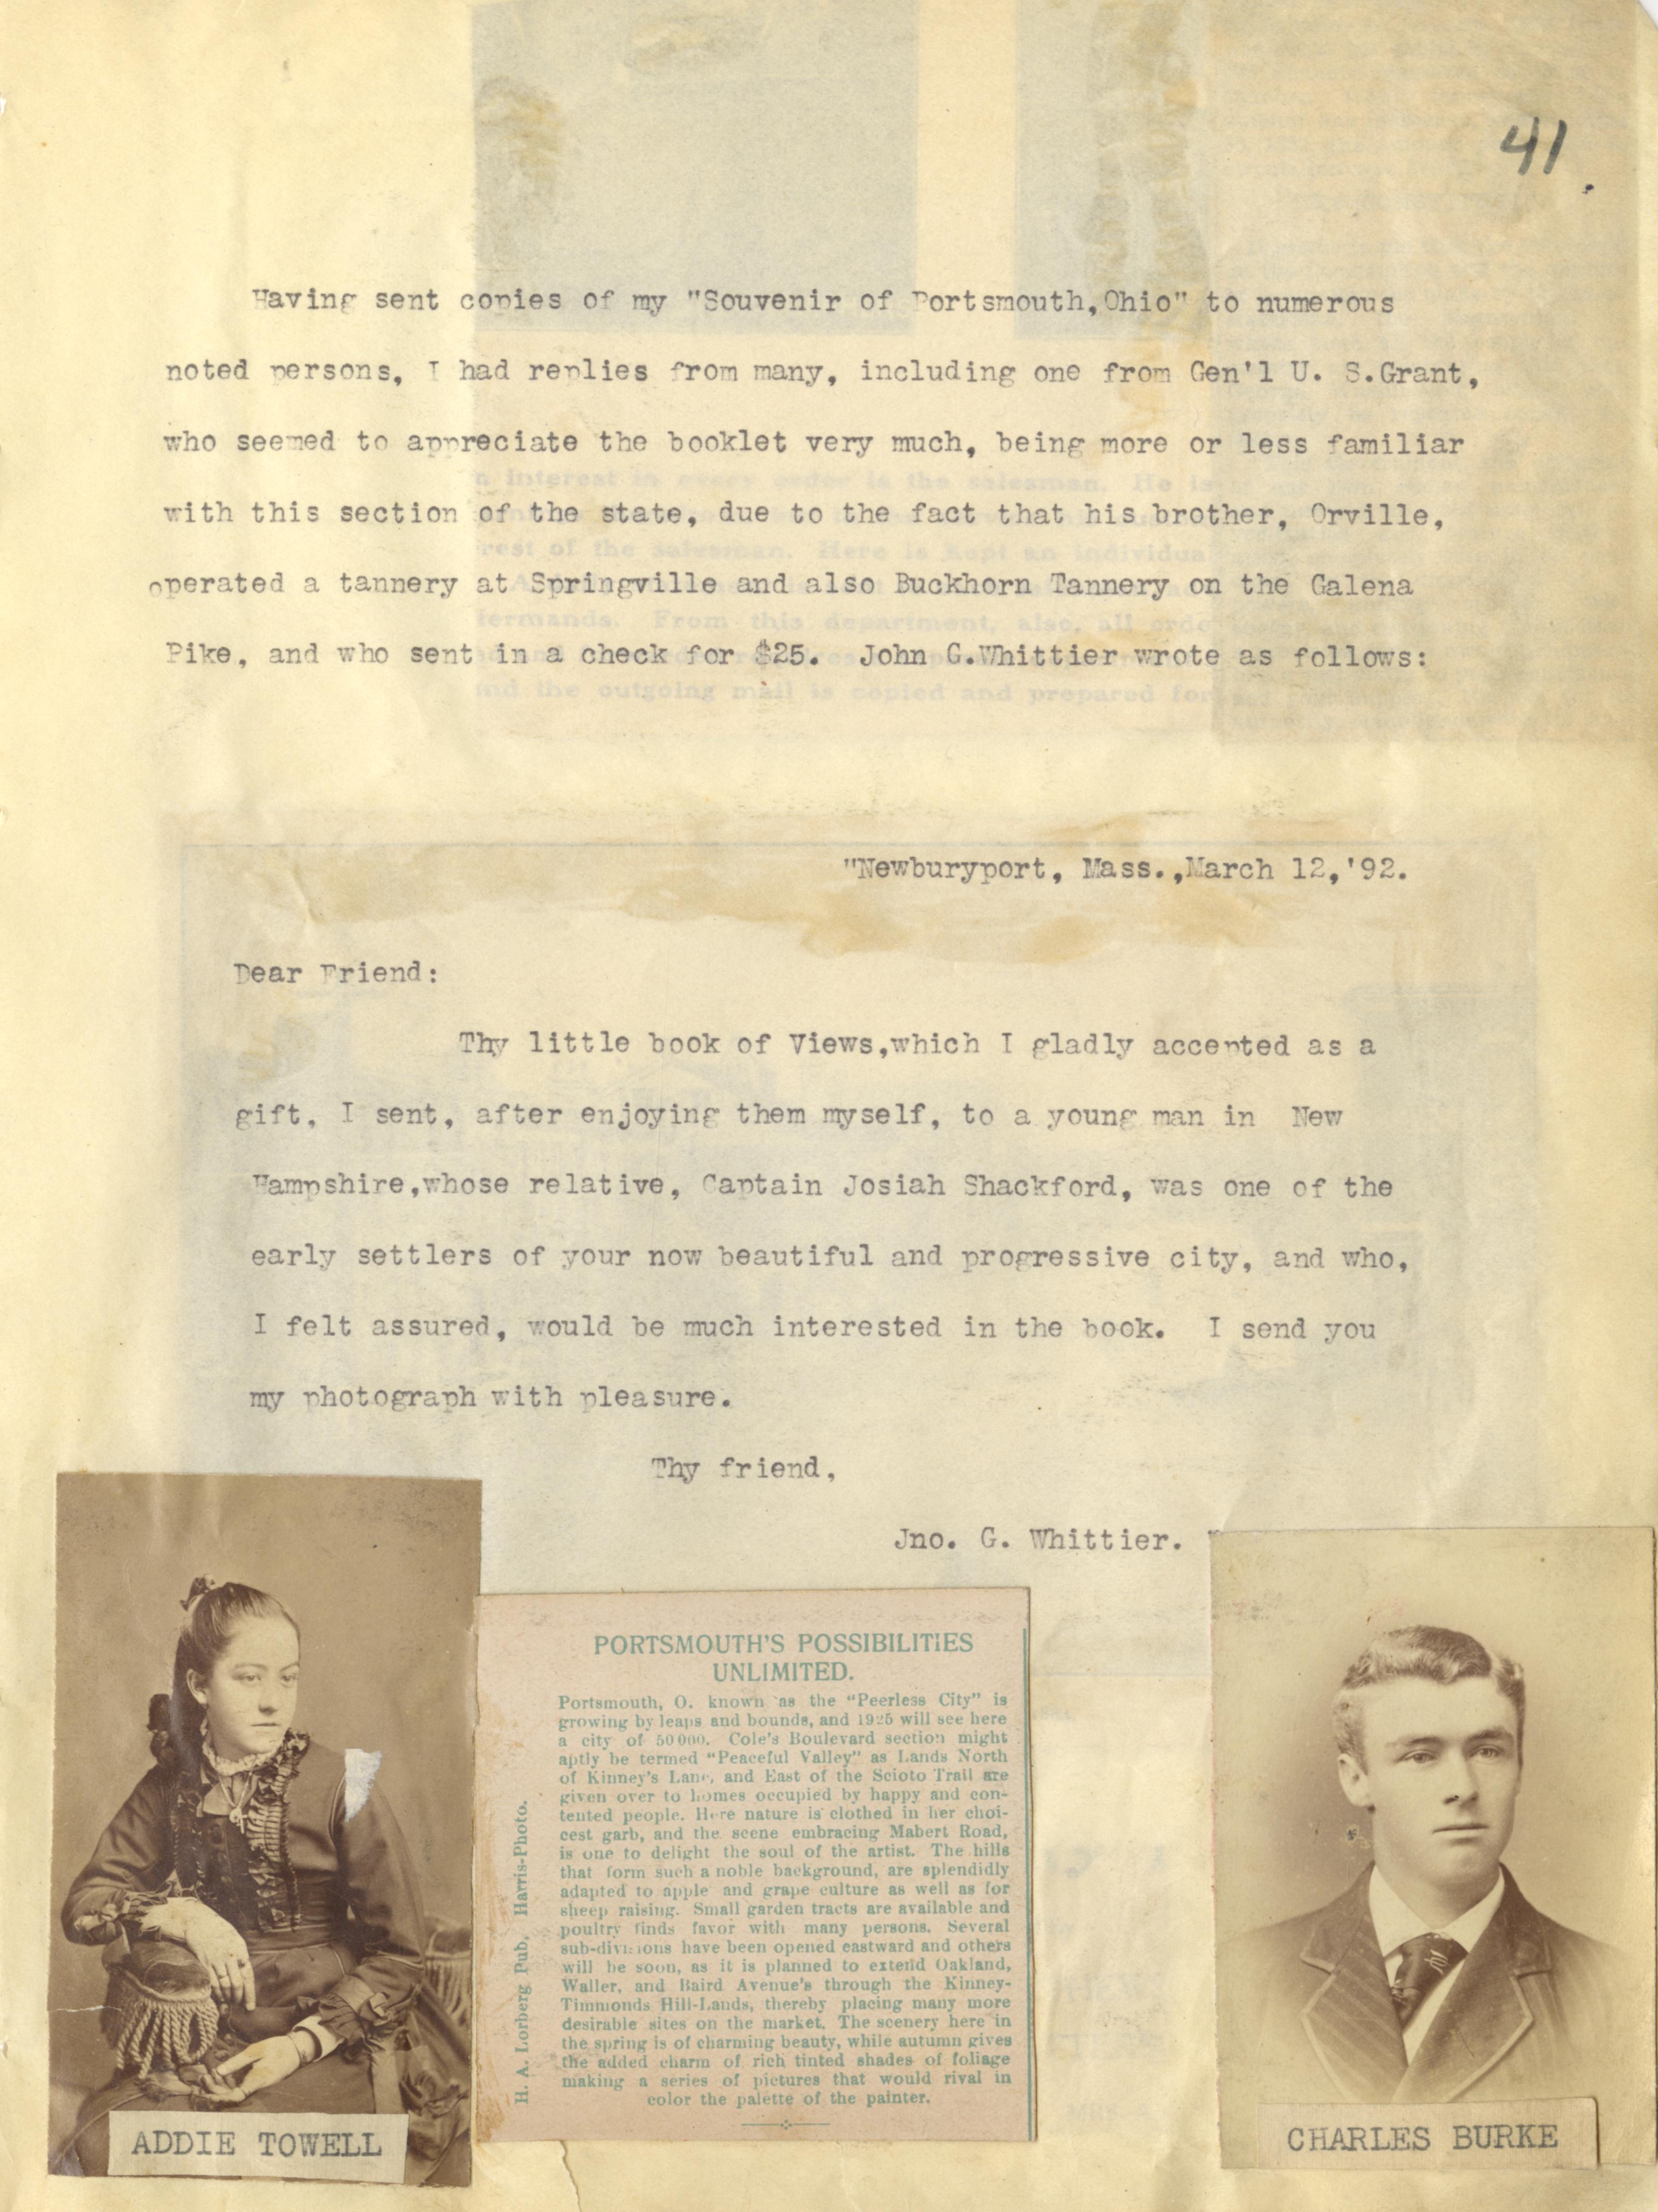 41.
Having sent copies of my "Souvenir of Portsmouth,Ohio" to numerous
noted persons, I had replies from many, including one from Gen'l U. S.Grant,
who seemed to appreciate the booklet very much, being more or less familiar
with this section of the state, due to the fact that his brother, Orville,
operated a tannery at Springville and also Buckhorn Tannery on the Galena
Pike, and who sent in a check for $25. John G.Whittier wrote as follows:
n interest in every order is the salesman. He is
rest of the salesman. Here is kept an individual
termands. From this department, also, all orde
nd the outgoing mail is copied and prepared for
"Newburyport, Mass.,March 12,'92.
Dear Friend:
Thy little book of Views,which I gladly accepted as a
gift, I sent, after enjoying them myself, to a young man in New
Hampshire,whose relative, Captain Josiah Shackford, was one of the
early settlers of your now beautiful and progressive city, and who,
I felt assured, would be much interested in the book. I send you
my photograph with pleasure.
Thy friend,
Jno. G. Whittier. "
ADDIE TOWELL
H. A. Lorberg Pub, Harris-Photo.
PORTSMOUTH'S POSSIBILITIES
UNLIMITED.
Portsmouth, O. known as the "Peerless City" is
growing by leaps and bounds, and 1925 will see here
a city of 50000. Cole's Boulevard section might
aptly be termed "Peaceful Valley" as Lands North
of Kinney's Lane, and East of the Scioto Trail are
given over to homes occupied by happy and con-
tented people. Here nature is clothed in her choi-
cest garb, and the scene embracing Mabert Road,
is one to delight the soul of the artist. The hills
that form such a noble background, are splendidly
adapted to apple and grape culture as well as for
sheep raising. Small garden tracts are available and
poultry finds favor with many persons. Several
sub-divisions have been opened eastward and others
will be soon, as it is planned to extend Oakland,
Waller, and Baird Avenue's through the Kinney-
Timmonds Hill-Lands, thereby placing many more
desirable sites on the market. The scenery here in
the spring is of charming beauty, while autumn gives
the added charm of rich tinted shades of foliage
making a series of pictures that would rival in
color the palette of the painter.
CHARLES BURKE